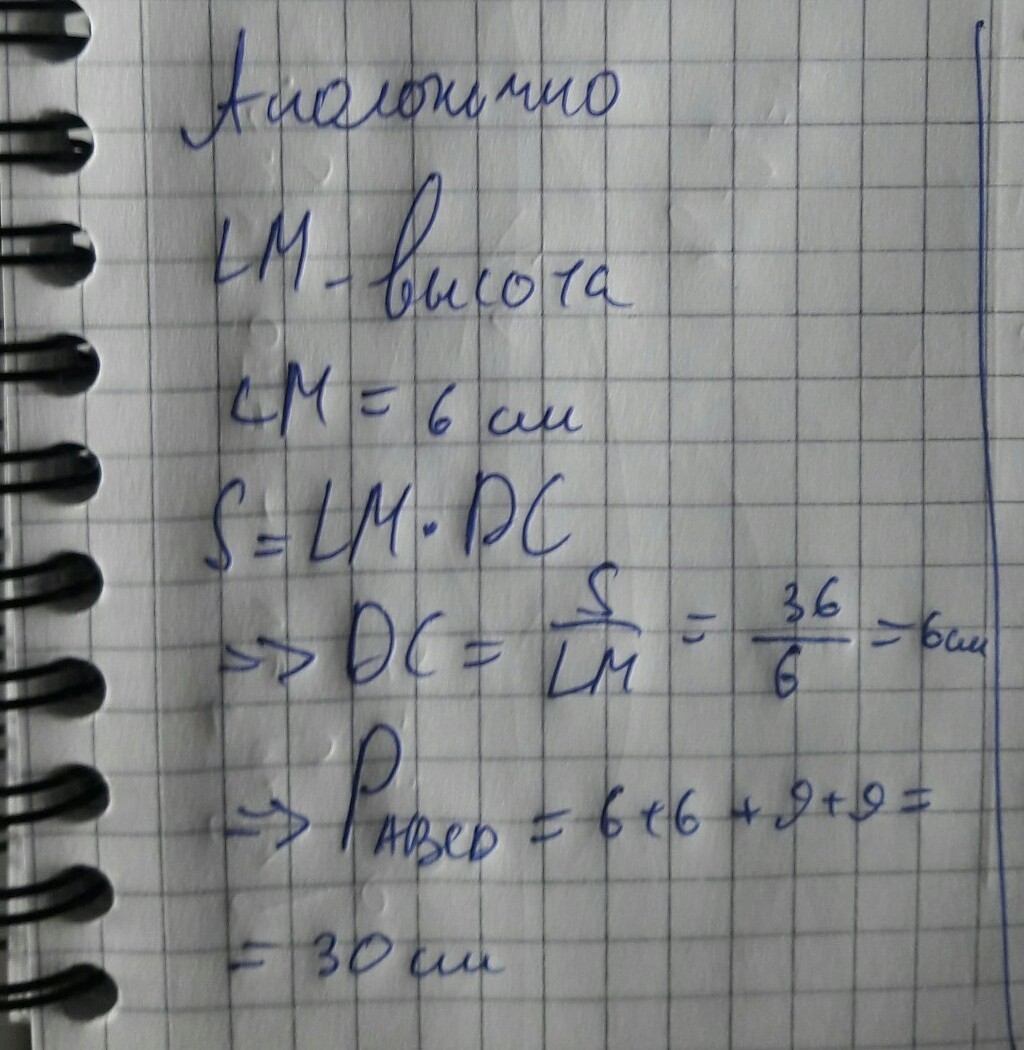 Аналогично
LM - высота
LM = 6 см
S = LM · DC
=> DC = S/LM = 36/6 = 6 см
=> P ABCD = 6 + 6 + 9 + 9 =
= 30 см